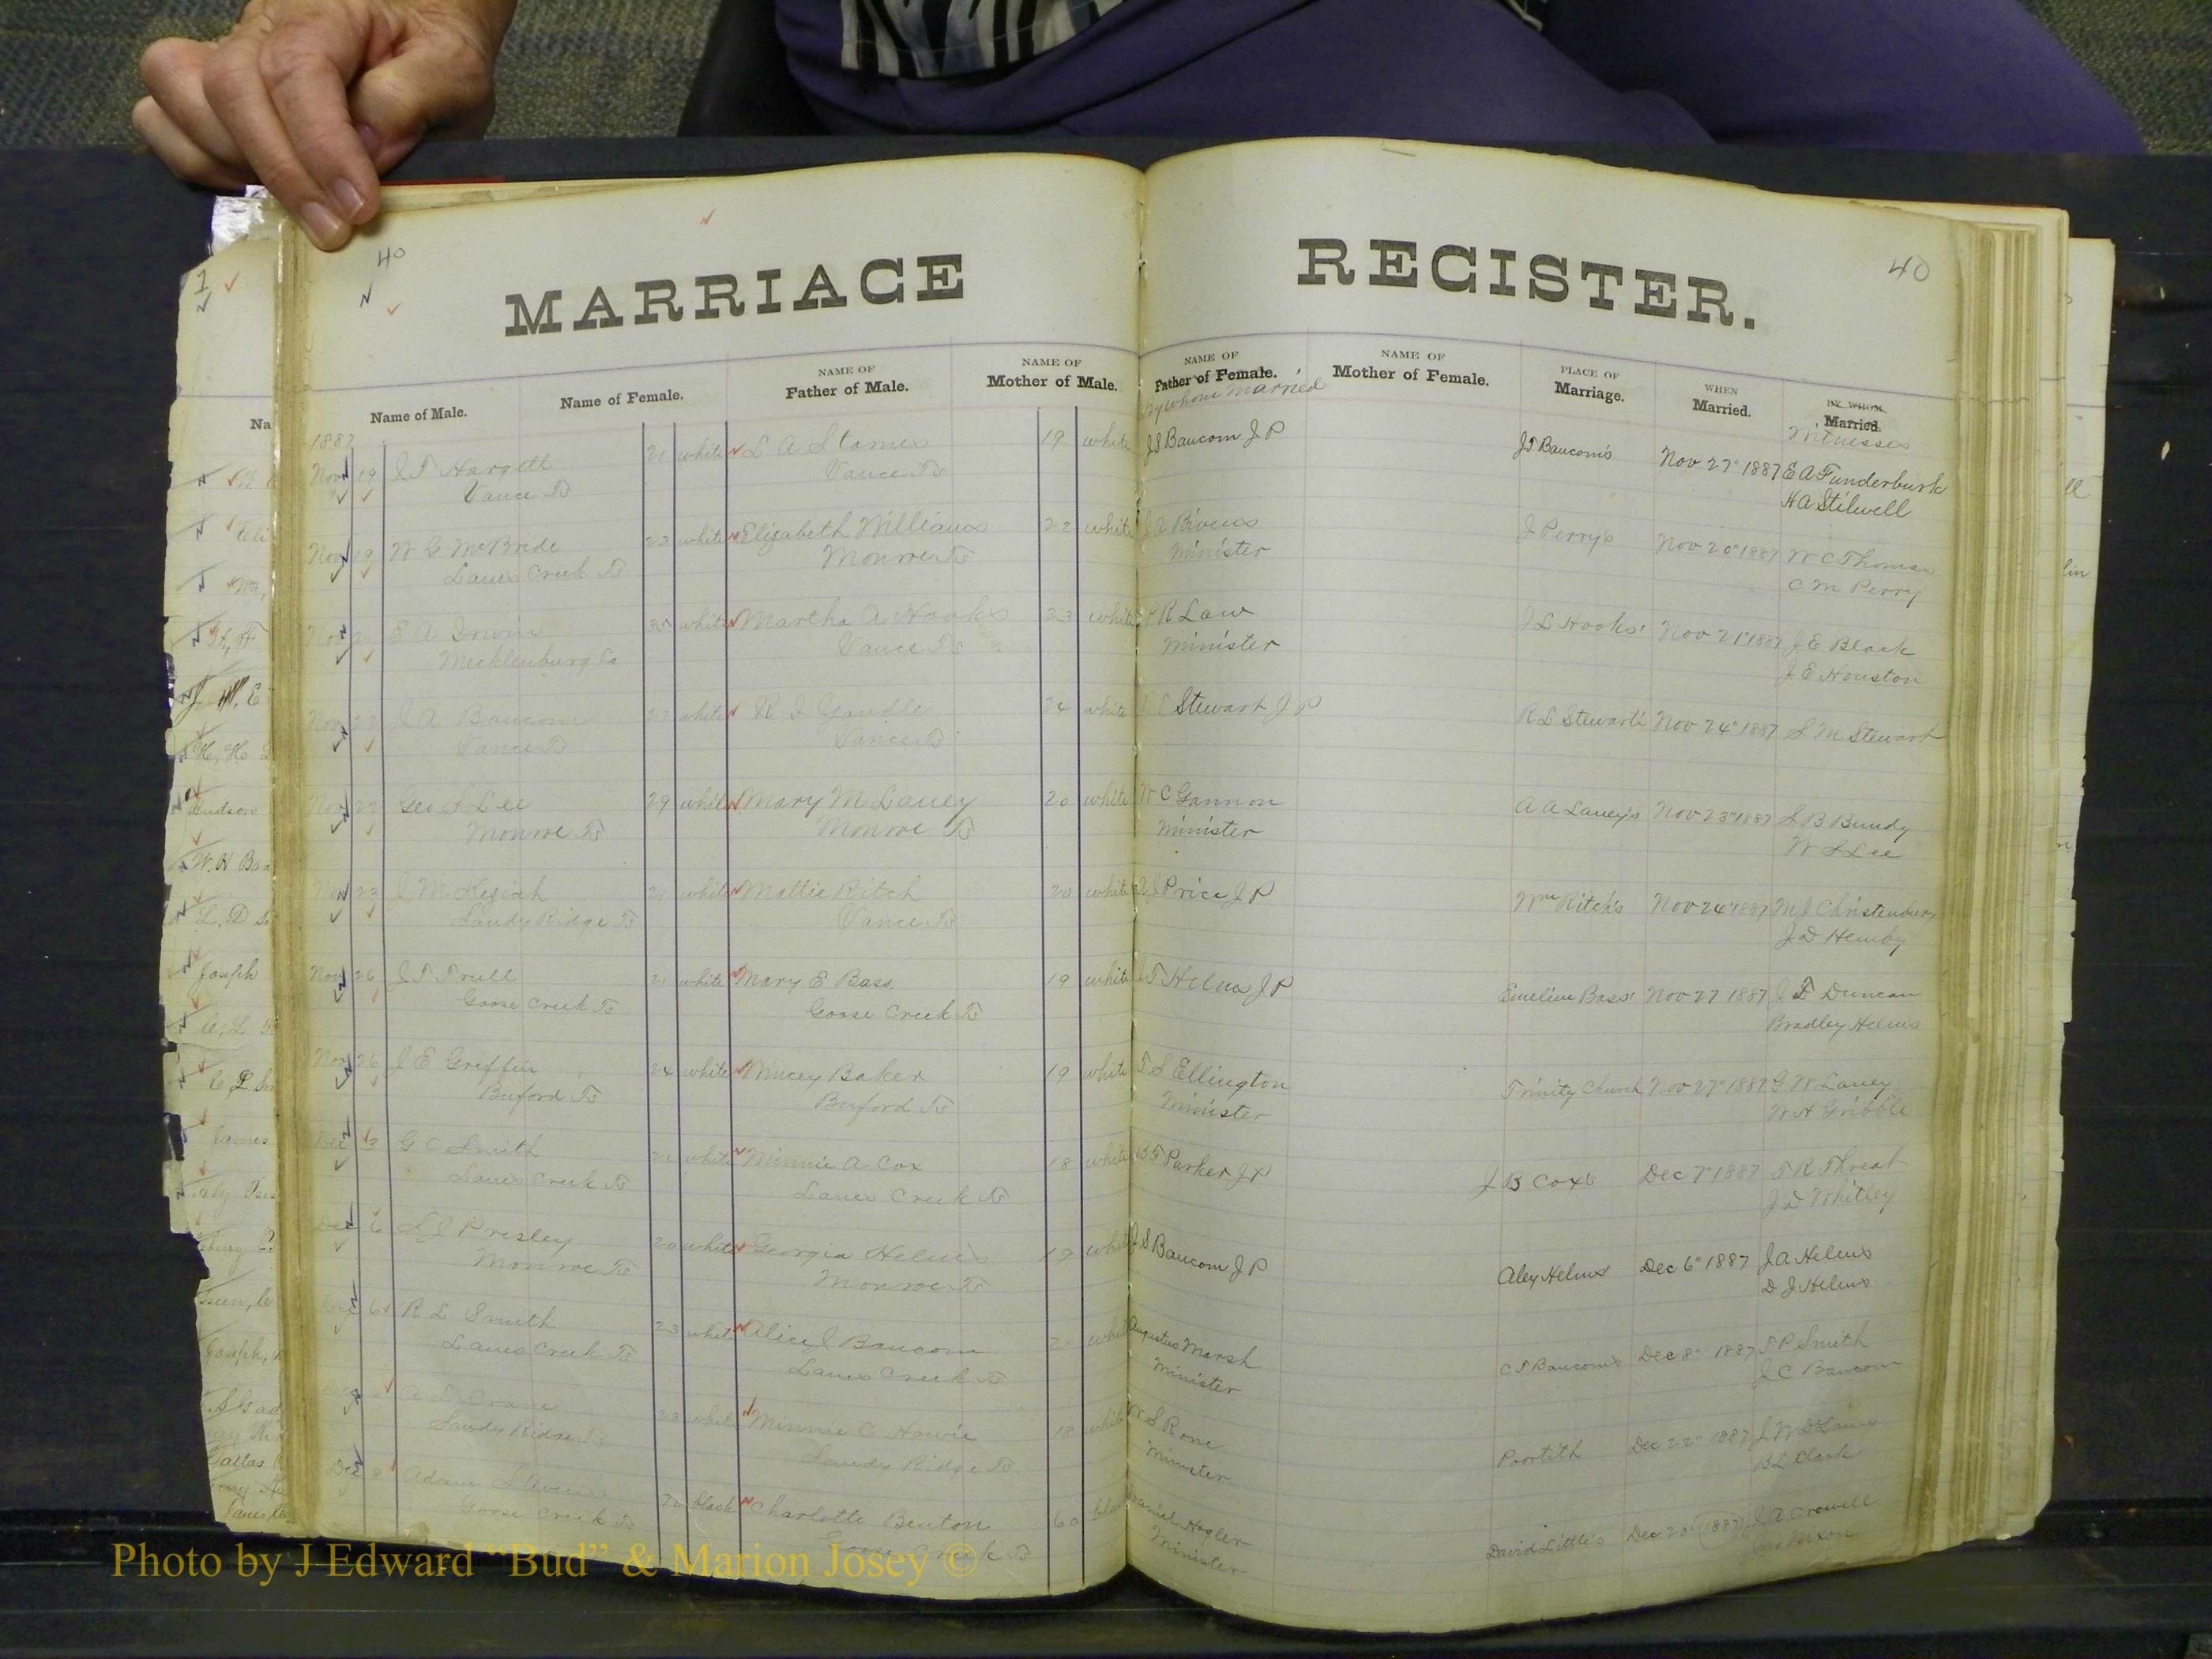 40
MARRIAGE REGISTER.
40
Name of Male.
Name of Female.
NAME OF
Father of Male.
NAME OF
Mother of Male.
NAME OF
Father of Female.
By whom married
NAME OF
Mother of Female.
PLACE OF
Marriage.
WHEN
Married.
BY WHOM
Married.
Witnesses
1887
Nov 19 J T Hargett 21 white L A Starnes 19 white J S Baucom J P J S Baucom's Nov 27" 1887 E A Funderburk
Vance Ts Vance Ts H A Stilwell
Nov 19 W G McBride 23 white Elizabeth Williams 22 white J A Bivens J Perry's Nov 20" 1887 W C Thomas
Lanes Creek Ts Monroe Ts Minister C M Perry
Nov E A Irwin 35 white Martha A Hooks 23 white P R Law J L Hooks' Nov 21" 1887 J E Black
Mecklenburg Co Vance Ts Minister J E Houston
Nov 22 J A Baucom 27 white R I Yandle 24 white R L Stewart J P R L Stewart's Nov 24" 1887 S M Stewart
Vance Ts Vance Ts
Nov 22 Geo S Lee 29 white Mary M Laney 20 white W C Gannon A A Laney's Nov 23" 1887 S B Bundy
Monroe Ts Monroe Ts Minister W S Lee
Nov 23 J M Keziah 21 white Mattie Ritch 20 white Price J P Wm Ritch's Nov 24" 1887 M J Christenbury
Sandy Ridge Ts Vance Ts J D Hemby
Nov 26 J T Trull 21 white Mary E Bass 19 white T Helms J P Emeline Bass' Nov 27 1887 Duncan
Goose Creek Ts Goose Creek Ts Bradley Helms
Nov 26 J E Griffin 24 white Baker 19 white T S Ellington Trinity Church Nov 27" 1887 G W Laney
Buford Ts Buford Ts Minister W H Gribble
Dec 3 G C Smith white Minnie A Cox 18 white B F Parker J P J B Cox's Dec 7" 1887 T R Threat
Lanes Creek Ts Lanes Creek Ts J D Whitley
Dec 6 Presley 20 white Georgia Helms 19 white J S Baucom J P Aley Helms' Dec 6" 1887 J A Helms
Monroe Ts Monroe Ts D J Helms
Dec 6 R L Smith 23 white Alice J Baucom white Augustus Marsh C T Baucom's Dec 8" 1887 T P Smith
Lanes Creek Ts Lanes Creek Ts Minister J C Baucom
A L Crane 23 white Minnie C Howie 18 white W S Rone Poortith Dec 22" 1887 J W D Laney
Sandy Ridge Ts Sandy Ridge Ts Minister B L Clark
Dec 8 Adam Stevens 70 black Charlotte Benton 60 black Daniel Hagler David Little's Dec 1887 J A Crowell
Goose Creek Ts Goose Creek Ts Minister
Photo by J Edward "Bud" & Marion Josey ©